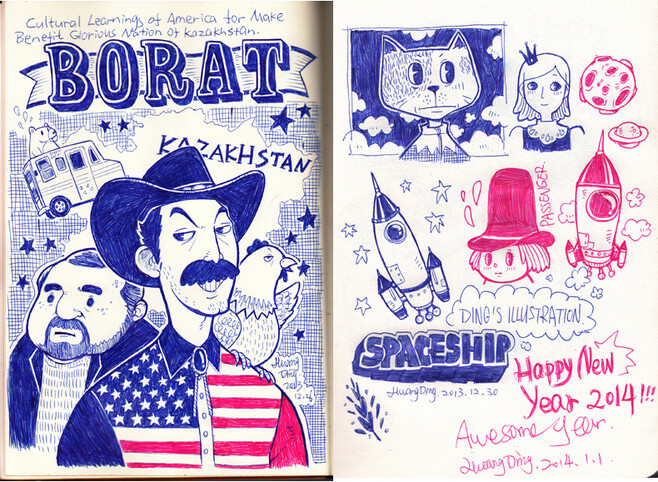 Cultural Learnings of America for Make
Benefit Glorious Nation Of Kazakhstan.
BORAT
KAZAKHSTAN
Huang
Ding.
2013
12.26
PASSENGER
DING'S ILLUSTRATION
SPACESHIP
HuangDing. 2013. 12. 30
HAPPY NEW
YEAR 2014!!!
Awesome Year.
HuangDing. 2014. 1. 1.